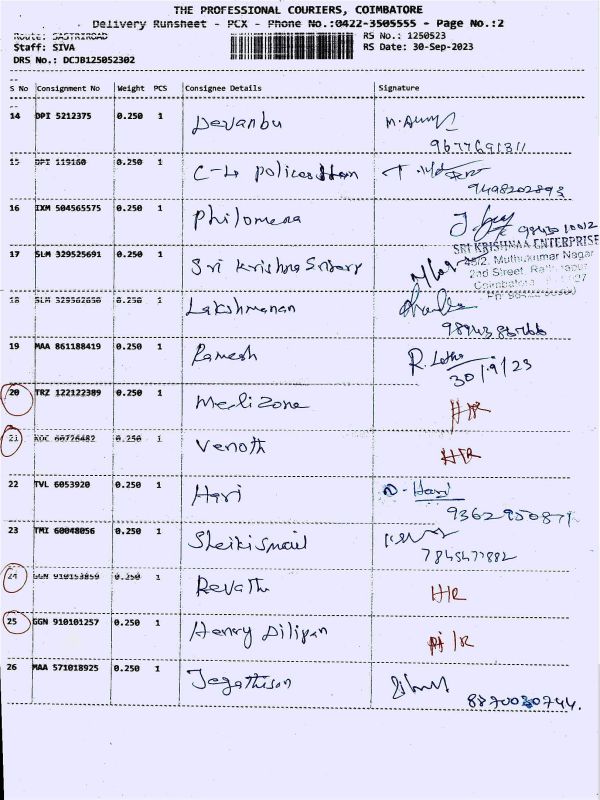 THE PROFESSIONAL COURIERS, COIMBATORE
Delivery Runsheet - PCX - Phone No.:0422-3505555 - Page No.:2
Route: SASTRIROAD
RS No.: 1250523
Staff: SIVA
RS Date: 30-Sep-2023
DRS No.: DCJB125052302
S No Consignment No Weight PCS Consignee Details Signature
14 DPI 5212375 0.250 1 Devanbu
9677691311
15 DPI 119160 0.250 1
9498202893
16 IXM 504565575 0.250 1 Philomena
SRI KRISHNAA ENTERPRISE
17 SLM 329525691 0.250 1 Sri Krishna
45/2, Muthukumar Nagar
2nd Street,
Coimbatore
18 SLM 329562650 0.250 1 Lakshmanan
19 MAA 861188419 0.250 1 Ramesh R. Latha
30/9/23
20 TRZ 122122389 0.250 1 Medizone H/R
21 KOC 60726482 0.250 1 Venoth H/R
22 TVL 6053920 0.250 1 Hari D. Hari
23 TMI 60048056 0.250 1 Sheikismail
7845477882
24 GGN 910153850 0.250 1 Revathi H/R
25 GGN 910101257 0.250 1 Henry Dilipan
26 MAA 571018925 0.250 1 Jegathisan